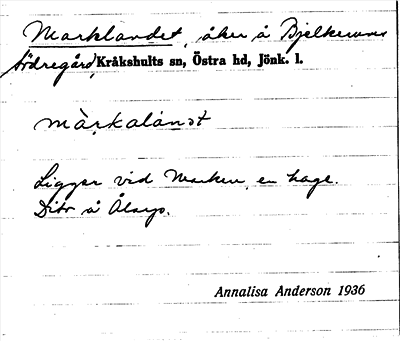 Marklandet, åker å Bjelkerums
Södregård, Kråkshults sn, Östra hd, Jönk. l.
màrkalánǝt
Ligger vid Marken, en hage.
Dito å Ålarp.
Annalisa Anderson 1936